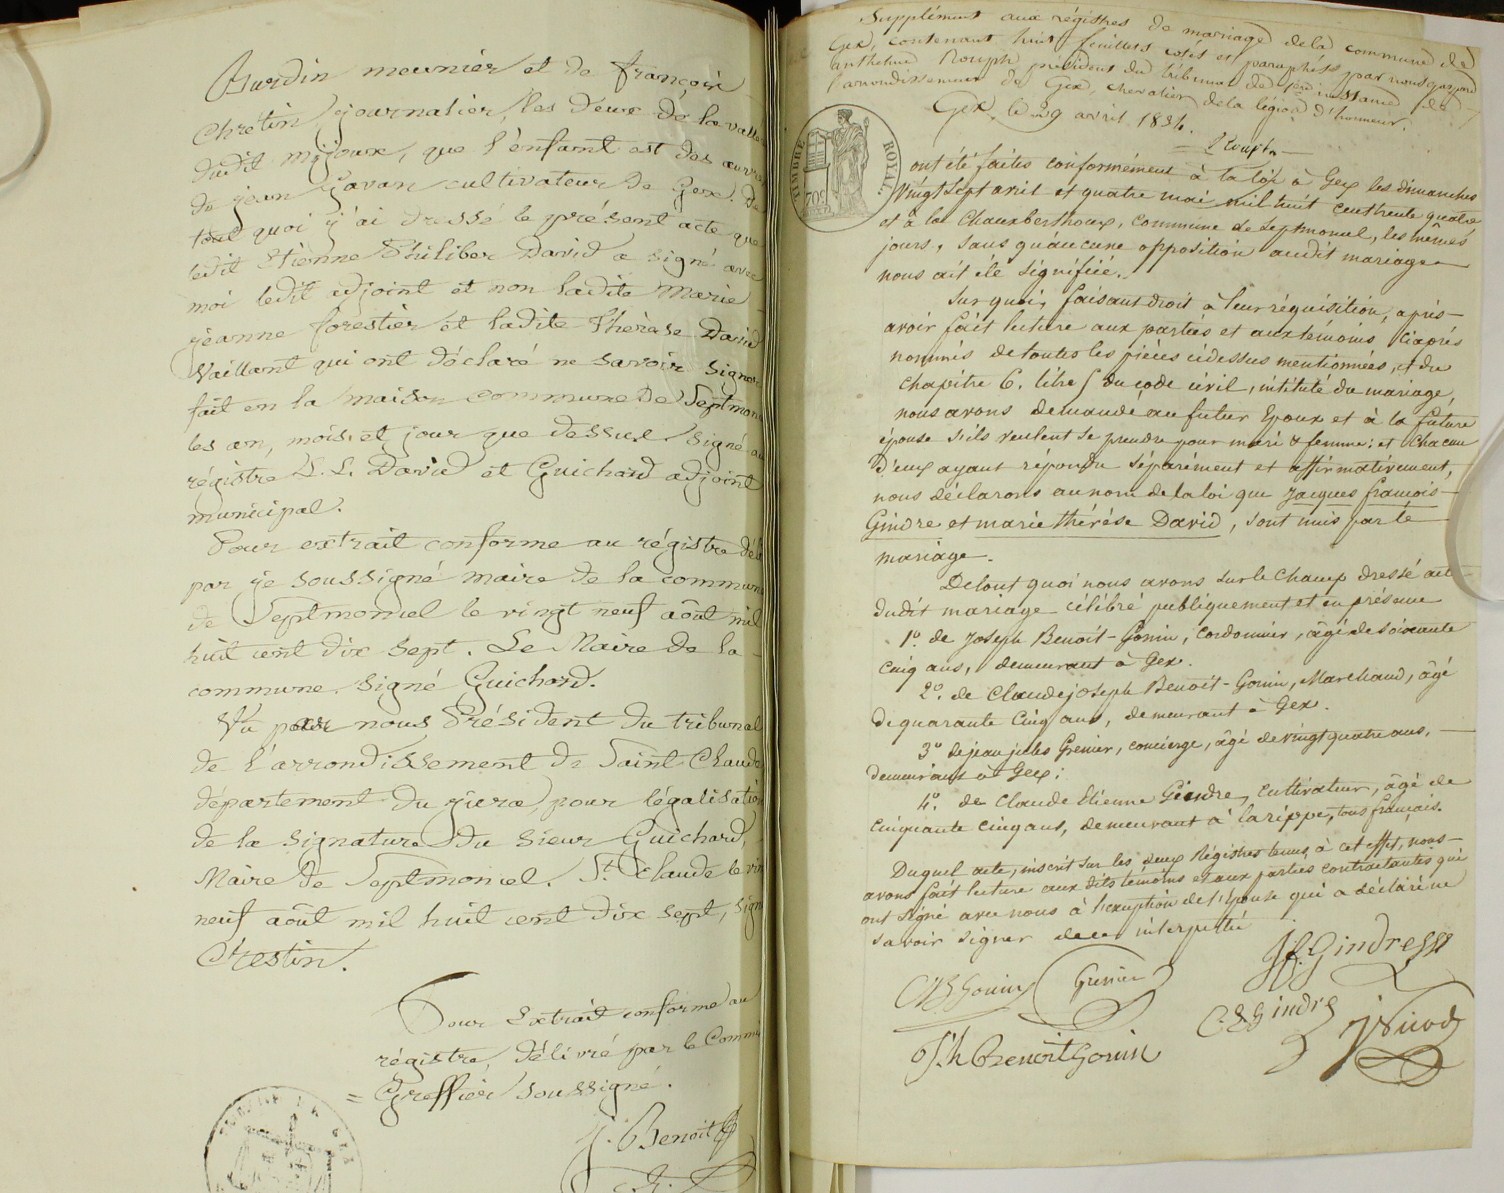 Burdin meunier et de françois
Chretin journalier, les deux de la valle
dudit mijoux, que l'enfant est des œuvres
de jean Gavan cultivateur de Gex. De
tout quoi j'ai dressé le présent acte que
ledit Etienne Philiber David a signé avec
moi ledit adjoint et non ladite Marie
jeanne forestier et ladite Thérèse David
Vaillant qui ont déclaré ne savoir signer
fait en la maison commune de Septmon
les an, mois et jour que dessus. Signé au
régistre E. P. David et Guichard adjoint
municipal.
Pour extrait conforme au régistre dél
par je soussigné maire de la commune
de Septmoncel le vingt neuf aôut mil
huit cent dix sept. Le Maire de la
commune. signé Guichard.
Vu par nous Président du tribunal
de l'arrondissement de Saint Claude
département du jura, pour légalisation
de la signature du Sieur Guichard,
Maire de Septmoncel. St. Claude le vin
neuf aôut mil huit cent dix sept, sign
Chrestin.
Pour Extrait conforme au
régistre, délivré par le Commi
= Greffier soussigné.
J. Benoit
Supplément aux régistres de mariage de la commune de
Gex, contenant huit feuillets cotés et paraphés par nous gaspard
anthelme Rouph président du tribunal de 1ère instance de
l'arrondissement de Gex, chevalier de la légion d'honneur.
Gex, le 29 avril 1834.
Rouph
TIMBRE ROYAL
70c
ont été faites conformément à la loi à Gex les dimanches
vingt sept avril et quatre mai mil huit cent trente quatre
et à la Chauxberthoux, commune de Septmoncel, les mêmes
jours, sans qu'aucune opposition audit mariage
nous ait été signifiée.
Sur quoi, faisant droit à leur réquisition, après
avoir fait lecture aux parties et aux témoins ci après
nommés de toutes les pièces cidessus mentionnées, et du
chapitre 6. titre 5 du code civil, intitulé du mariage,
nous avons demandé au futur époux et à la future
épouse s'ils veulent se prendre pour mari & femme; et chacun
d'eux ayant répondu séparément et affirmativement,
nous déclarons au nom de la loi que Jacques françois
Gindre et marie thérèse David, sont unis par le
mariage.
De tout quoi nous avons sur le champ dressé acte
dudit mariage célébré publiquement et en présence
1o. de Joseph Benoit-Gonin, cordonnier, âgé de soixante
cinq ans, demeurant à Gex.
2o. de Claude joseph Benoit-Gonin, Marchand, âgé
de quarante cinq ans, demeurant à Gex.
3o de jean jules Grenier, concierge, âgé de vingt quatre ans,
demeurant à Gex;
4o. de Claude Etienne Gindre, cultivateur, âgé de
cinquante cinq ans, demeurant à la rippe, tous français.
Duquel acte, inscrit sur les deux Régistres tenus à cet effet, nous
avons fait lecture aux dits témoins et aux parties contractantes qui
ont signé avec nous à l'exception de l'épouse qui a déclaré ne
savoir signer de ce interpellée
Jf. Gindre
CB Gonin Grenier
C. E Gindre
J'h Benoit Gonin Nicod